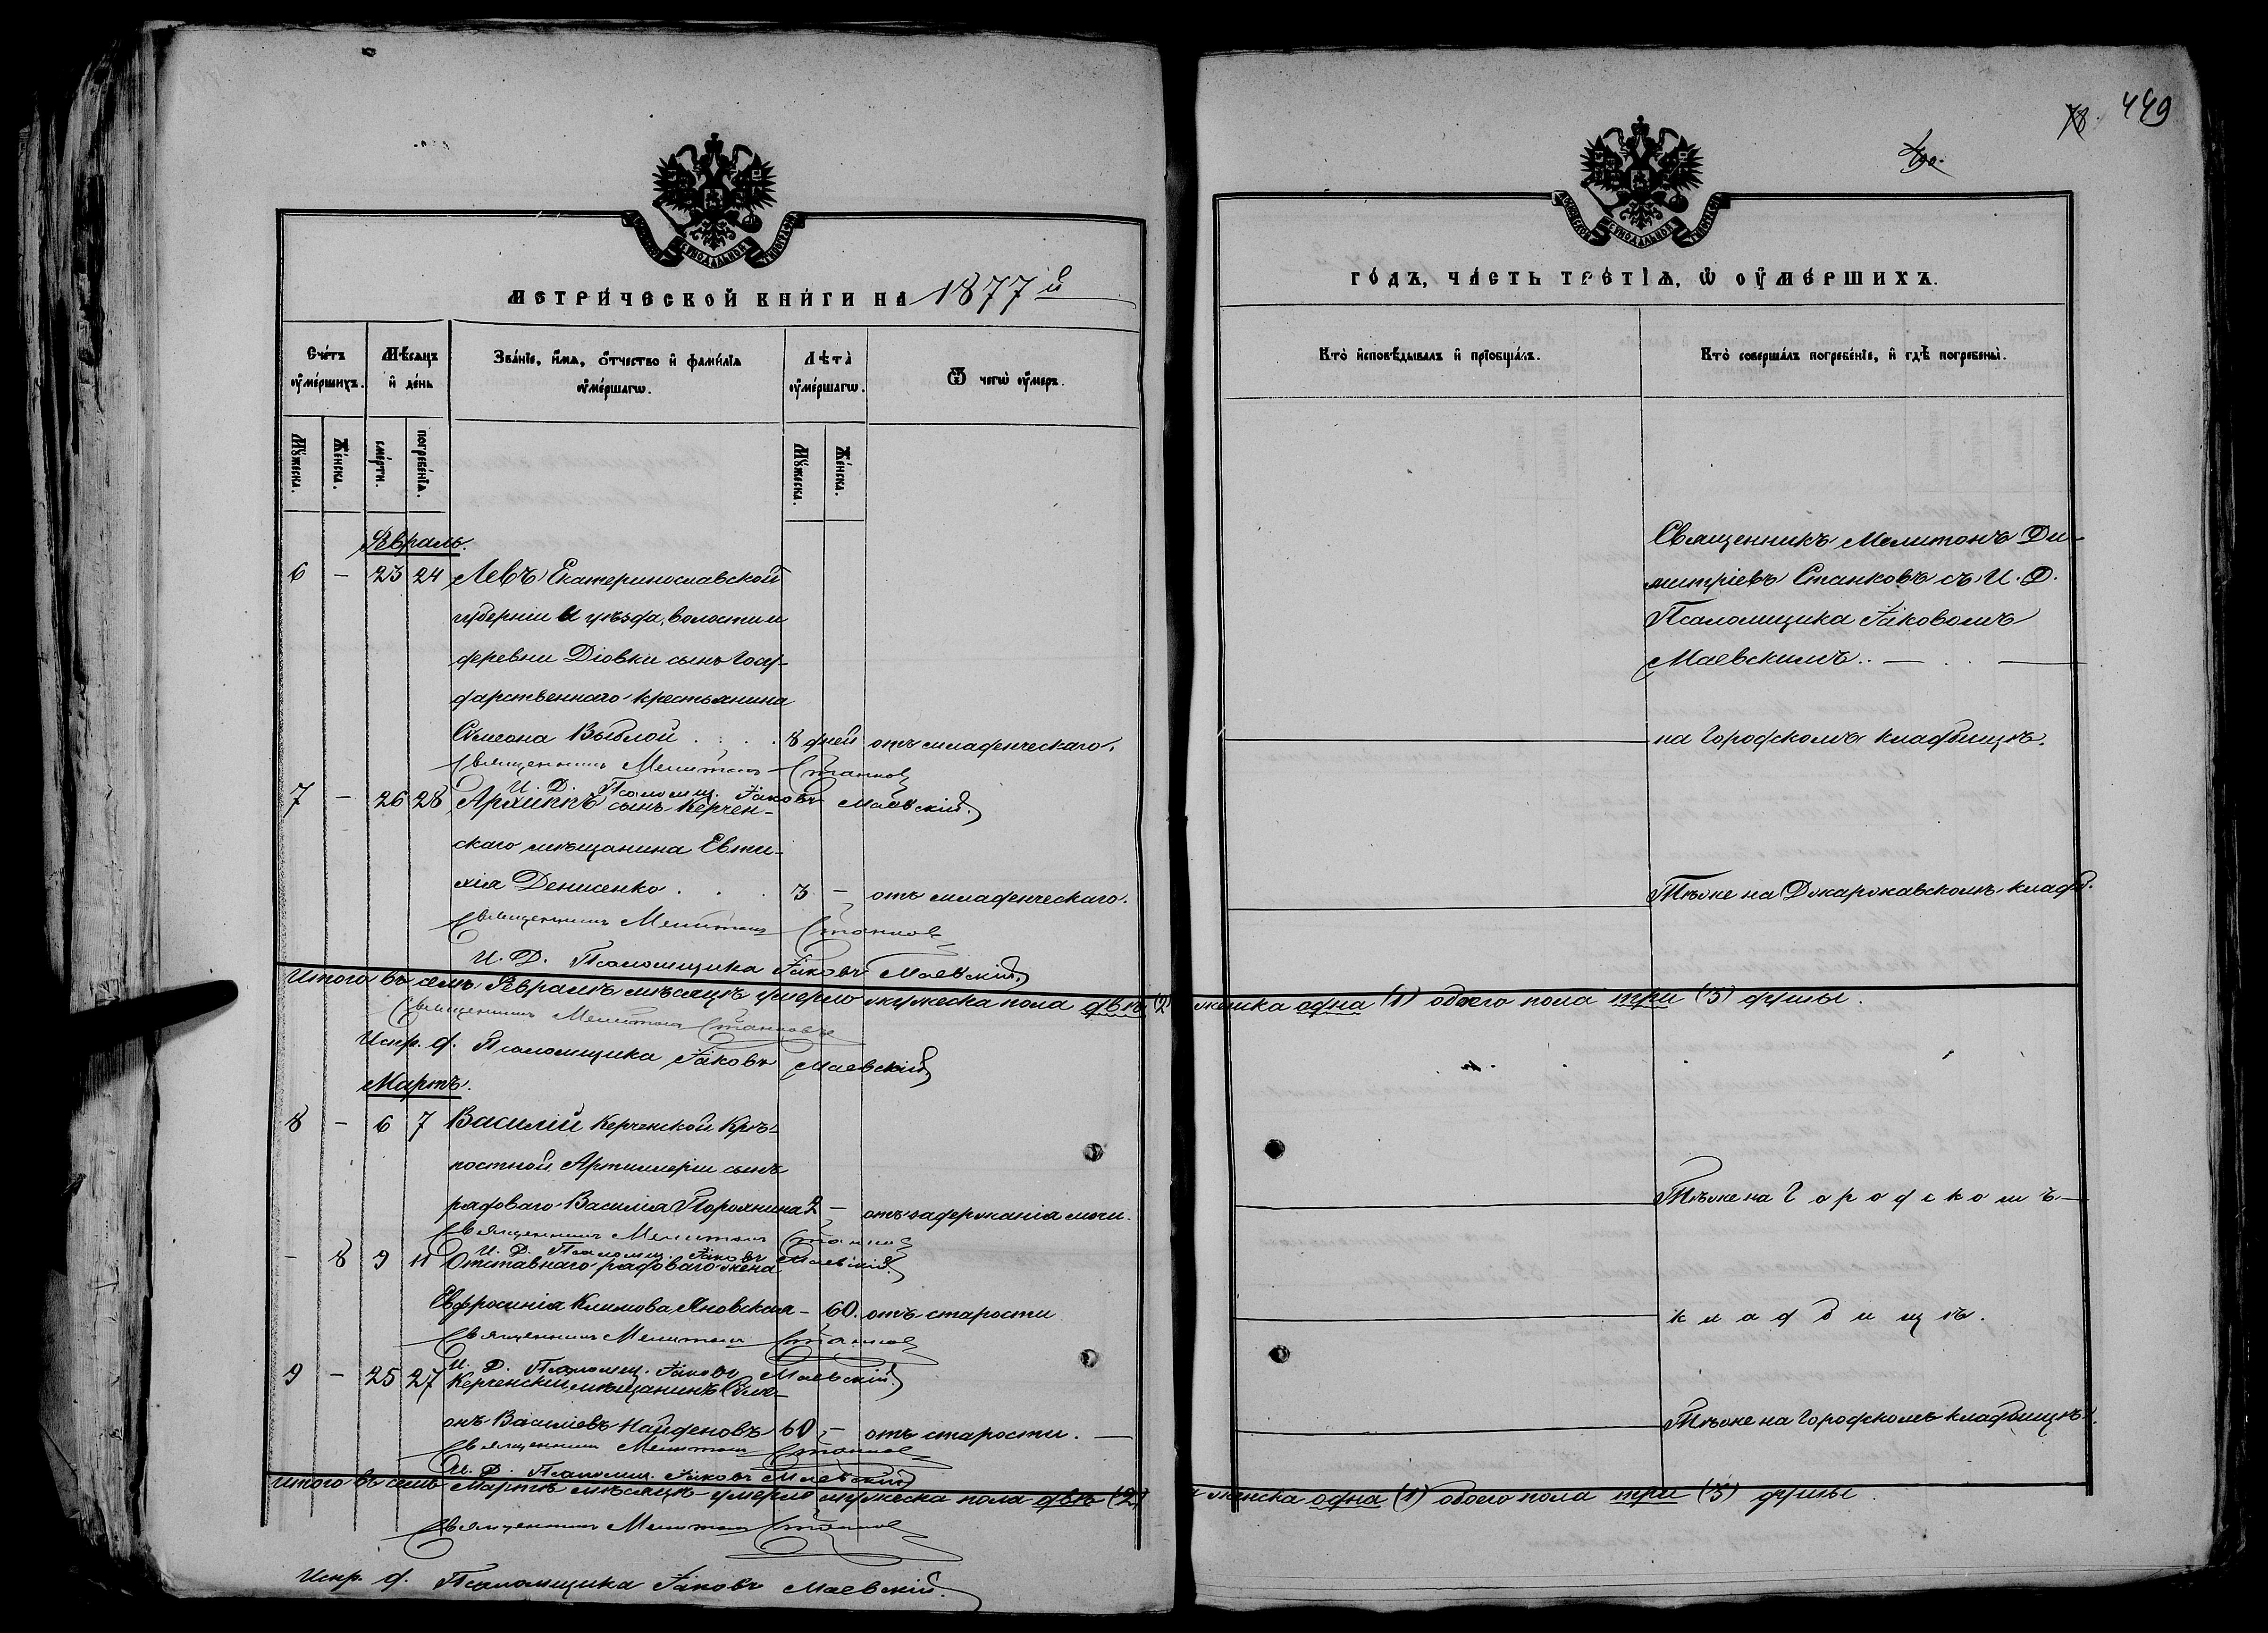 78. 449
490.
МОСКОВСКОЙ СѴНОДАЛЬНОЙ ТИПОГРАФІИ
МОСКОВСКОЙ СѴНОДАЛЬНОЙ ТИПОГРАФІИ
МЕТРИ́ЧЕСКОЙ КНИ́ГИ НА 1877й
ГО́ДЪ, ЧА́СТЬ ТРЕ́ТІѦ, Ѡ҆ ОУ҆МЕ́РШИХЪ.
Сче́тъ оу҆ме́ршихъ.
Мѣ́сѧцъ и҆ де́нь
Зва́нїе, и҆́мѧ, ѻ҆́тчество и҆ фамѝлїѧ оу҆ме́ршагѡ.
Лѣ́та̀ оу҆ме́ршагѡ.
Ѿ чегѡ̀ оу҆́меръ.
Кто̀ и҆сповѣ́дывалъ и҆ прїѡбща́лъ.
Кто̀ соверша́лъ погребе́нїе, и҆ гдѣ̀ погребены̀.
Мꙋ́жеска.
Же́нска.
сме́рти.
погребе́нїѧ.
Мꙋ́жеска.
Же́нска.
Февраль.
6 — 23 24 Левъ, Екатеринославской
губерніи и уѣзда, волости и
деревни Діовки сынъ Госу-
дарственнаго крестьянина
Симеона Выблой . . . . 8 дней отъ младенческаго.
Священникъ Мелитонъ Ди-
митріевъ Станковъ съ И. Д.
Псаломщика Іаковомъ
Маевскимъ. —
на Городскомъ кладбищѣ.
Священникъ Мелитонъ Станковъ
И. Д. Псаломщ. Іаковъ Маевскій.
7 — 26 28 Архиппъ сынъ Керчен-
скаго мѣщанина Евти-
хія Денисенко . . . 3 — отъ младенческаго.
Тѣже на Джаржавскомъ кладб.
Священникъ Мелитонъ Станковъ
И. Д. Псаломщика Іаковъ Маевскій.
Итого въ семъ Февралѣ мѣсяцѣ умерло мужеска пола двѣ (2) женска одна (1) обоего пола три (3) души.
Священникъ Мелитонъ Станковъ
Испр. д. Псаломщика Іаковъ Маевскій
Мартъ.
8 — 6 7 Василій Керченской Крѣ-
постной Артиллеріи сынъ
рядоваго Василія Порохнина 2 — отъ задержанія мочи.
Тѣже на Городскомъ —
Священникъ Мелитонъ Станковъ
И. Д. Псаломщ. Іаковъ Маевскій.
— 8 9 11 Отставнаго рядоваго жена
Евфросинія Климова Яновская — 60. отъ старости
кладбищѣ.
Священникъ Мелитонъ Станковъ
И. Д. Псаломщ. Іаковъ Маевскій.
9 — 25 27 Керченскій мѣщанинъ Симе-
онъ Василіевъ Найденовъ 60 — отъ старости. —
Тѣже на Городскомъ кладбищѣ.
Священникъ Мелитонъ Станковъ
И. Д. Псаломщ. Іаковъ Маевскій
Итого въ семъ Мартѣ мѣсяцѣ умерло мужеска пола двѣ (2) женска одна (1) обоего пола три (3) души.
Священникъ Мелитонъ Станковъ
Испр. д. Псаломщика Іаковъ Маевскій.